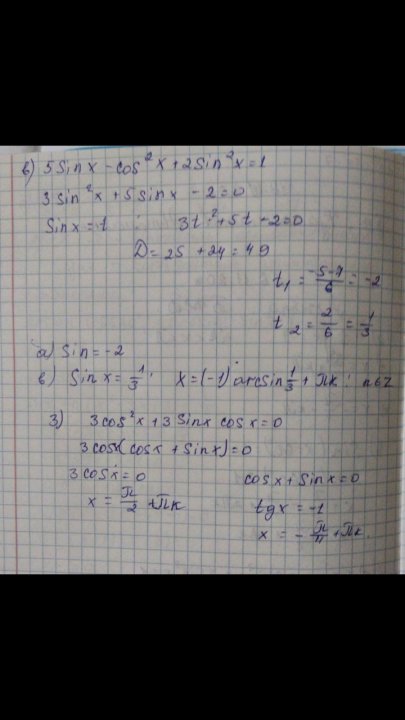 в) 5 Sin x - cos²x + 2 Sin²x = 1
3 sin²x + 5 sin x - 2 = 0
Sin x = t 3t² + 5t - 2 = 0
D = 25 + 24 = 49
t₁ = (-5-7)/6 = -2
t₂ = 2/6 = 1/3
а) Sin = -2
в) Sin x = 1/3 ; x = (-1) arcsin 1/3 + πk ; n ∈ Z
3) 3cos²x + 3 Sin x cos x = 0
3 cosx (cosx + Sin x) = 0
3 cos x = 0 cosx + Sin x = 0
x = π/2 + πk tg x = -1
x = - π/4 + πk.